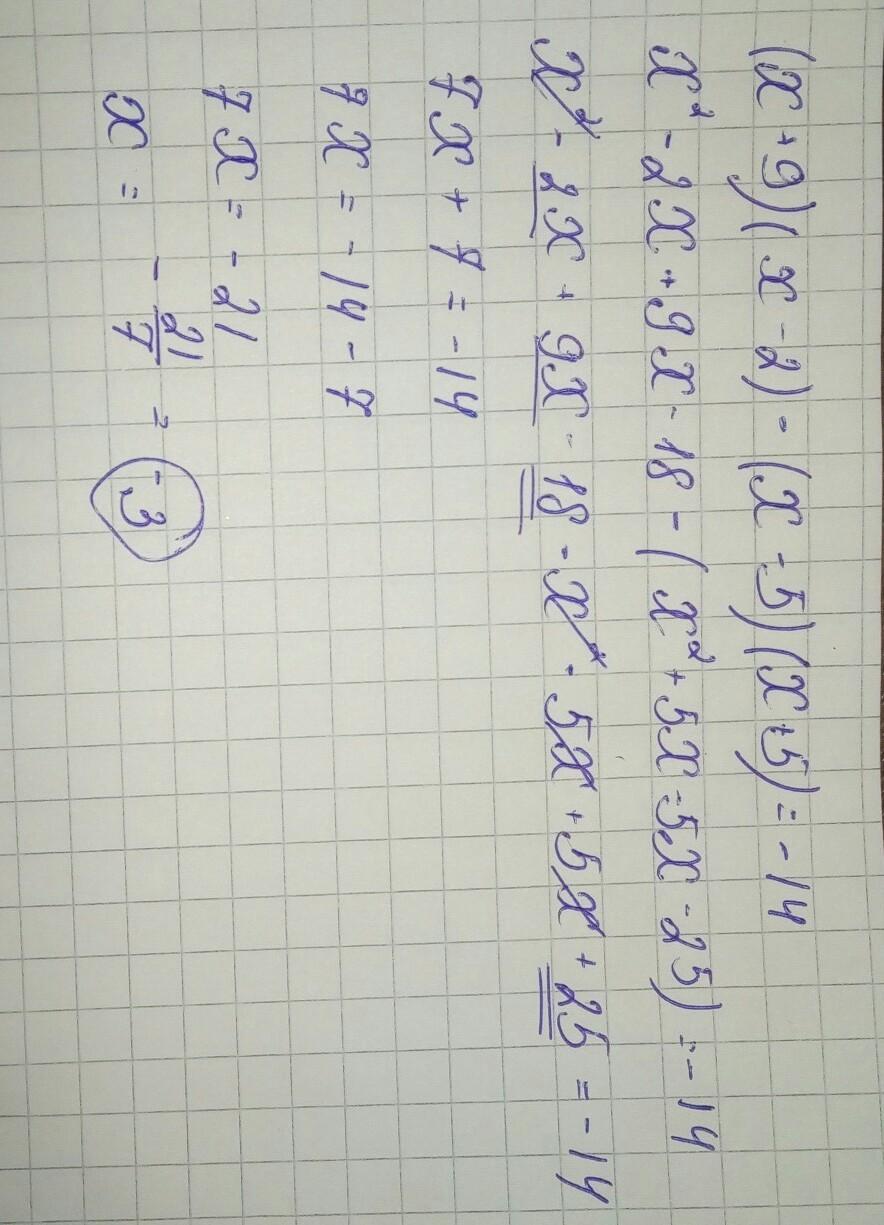 (x+9)(x-2)-(x-5)(x+5)=-14
x²-2x+9x-18-(x²+5x-5x-25)=-14
x²-2x+9x-18-x²-5x+5x+25=-14
7x+7=-14
7x=-14-7
7x=-21
x=-21/7=-3